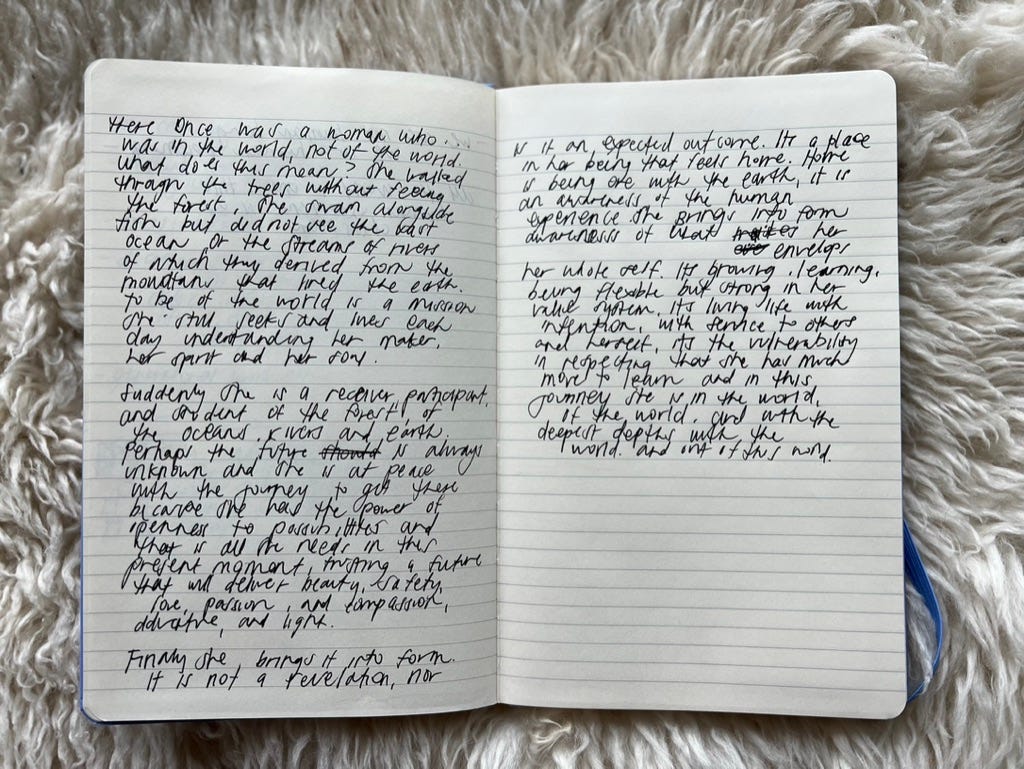 There Once was a woman who...
was in the world, not of the world.
What does this mean? She walked
through the trees without feeling
the forest, she swam alongside
fish but did not see the vast
ocean or the streams of rivers
of which they derived from the
mountains that lined the earth.
to be of the world is a mission
she still seeks and lives each
day understanding her maker,
her spirit and her soul.
Suddenly she is a receiver, participant,
and student of the forest, of
the oceans, rivers and earth.
Perhaps the future should is always
unknown and she is at peace
with the journey to get there
because she has the power of
openness to possibilities and
that is all she needs in this
present moment, trusting a future
that will deliver beauty, safety,
love, passion, and compassion,
adventure, and light.
Finally she, brings it into form.
It is not a revelation, nor
is it an expected outcome. Its a place
in her being that feels home. Home
is being one with the earth, it is
an awareness of the human
experience she brings into form
awareness of what makes her
envelops
her whole self. Its growing, learning,
being flexible but strong in her
value system, its living life with
intention, with service to others
and herself, its the vulnerability
in respecting that she has much
more to learn and in this
journey she is in the world,
of the world, and with the
deepest depths with the
world. and out of this world.